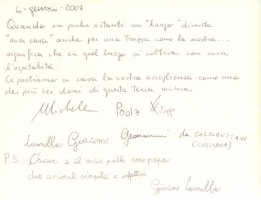 4 - gennaio - 2007
Quando in pochi istanti un "luogo" diventa
"una casa" anche per una truppa come la nostra...
significa che in quel luogo si coltiva con cura
l'ospitalità.
Ci portiamo a casa la vostra accoglienza come uno
dei più bei doni di questa Terra umbra
Michela Paola Filippo
Camilla Giacomo Giovanni da CASALBUTTANO
(CREMONA)
P.S.: Oscar e il mio papà
due
Giacomo Camilla